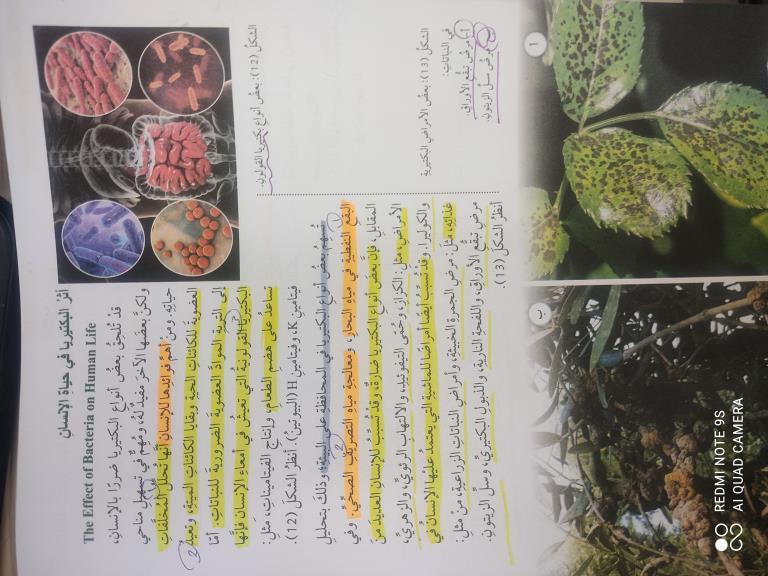 أثرُ البكتيريا في حياةِ الإنسانِ
The Effect of Bacteria on Human Life
قدْ تُلحقُ بعضُ أنواعِ البكتيريا ضررًا بالإنسانِ،
ولكنَّ بعضَها الآخرَ مفيدٌ لهُ، ومُهِمٌّ في تسهيلِ مناحي
حياتِهِ. ومنْ أهمِّ فوائدِها للإنسانِ أنَّها تحلِّلُ المُخلَّفاتِ
العضويةَ للكائناتِ الحيةِ وبقايا الكائناتِ الميتةِ، وتعيدُ
إلى التربةِ الموادَّ العضويةَ الضروريةَ للنباتاتِ. أمّا
البكتيريا القولونيةُ التي تعيشُ في أمعاءِ الإنسانِ فإنَّها
تساعدُ على هضمِ الطعامِ، وإنتاجِ الفيتاميناتِ، مثلِ:
فيتامينِ K، وفيتامينِ H (البيوتينُ). أنظرُ الشكلَ (12).
تسهمُ بعضُ أنواعِ البكتيريا في المحافظةِ على البيئةِ؛ وذلكَ بتحليلِ
البقعِ النفطيةِ في مياهِ البحارِ، ومعالجةِ مياهِ التصريفِ الصحيِّ. وفي
المقابلِ، فإنَّ بعضَ أنواعِ البكتيريا ضارةٌ، وقدْ تُسبِّبُ للإنسانِ العديدَ منَ
الأمراضِ، مثلِ: الكزازِ، وحُمّى التيفوئيدِ، والالتهابِ الرئويِّ، والزهريِّ،
والكوليرا. وقدْ تُسبِّبُ أيضًا أمراضًا للماشيةِ التي يعتمدُ عليْها الإنسانُ في
غذائِهِ، مثلَ: مرضِ الجمرةِ الخبيثةِ، وأمراضِ النباتاتِ الزراعيةِ، منْ مثلِ:
مرضِ تبقُّعِ الأوراقِ، واللفحةِ الناريةِ، والذبولِ البكتيريِّ، وسلِّ الزيتونِ.
أنظرُ الشكلَ (13).
الشكلُ (12): بعضُ أنواعِ بكتيريا القولونِ.
الشكلُ (13): بعضُ الأمراضِ البكتيريةِ
في النباتاتِ:
أ- مرضُ تبقُّعِ الأوراقِ.
مرضُ سلِّ الزيتونِ.
أ
ب
REDMI NOTE 9S
AI QUAD CAMERA